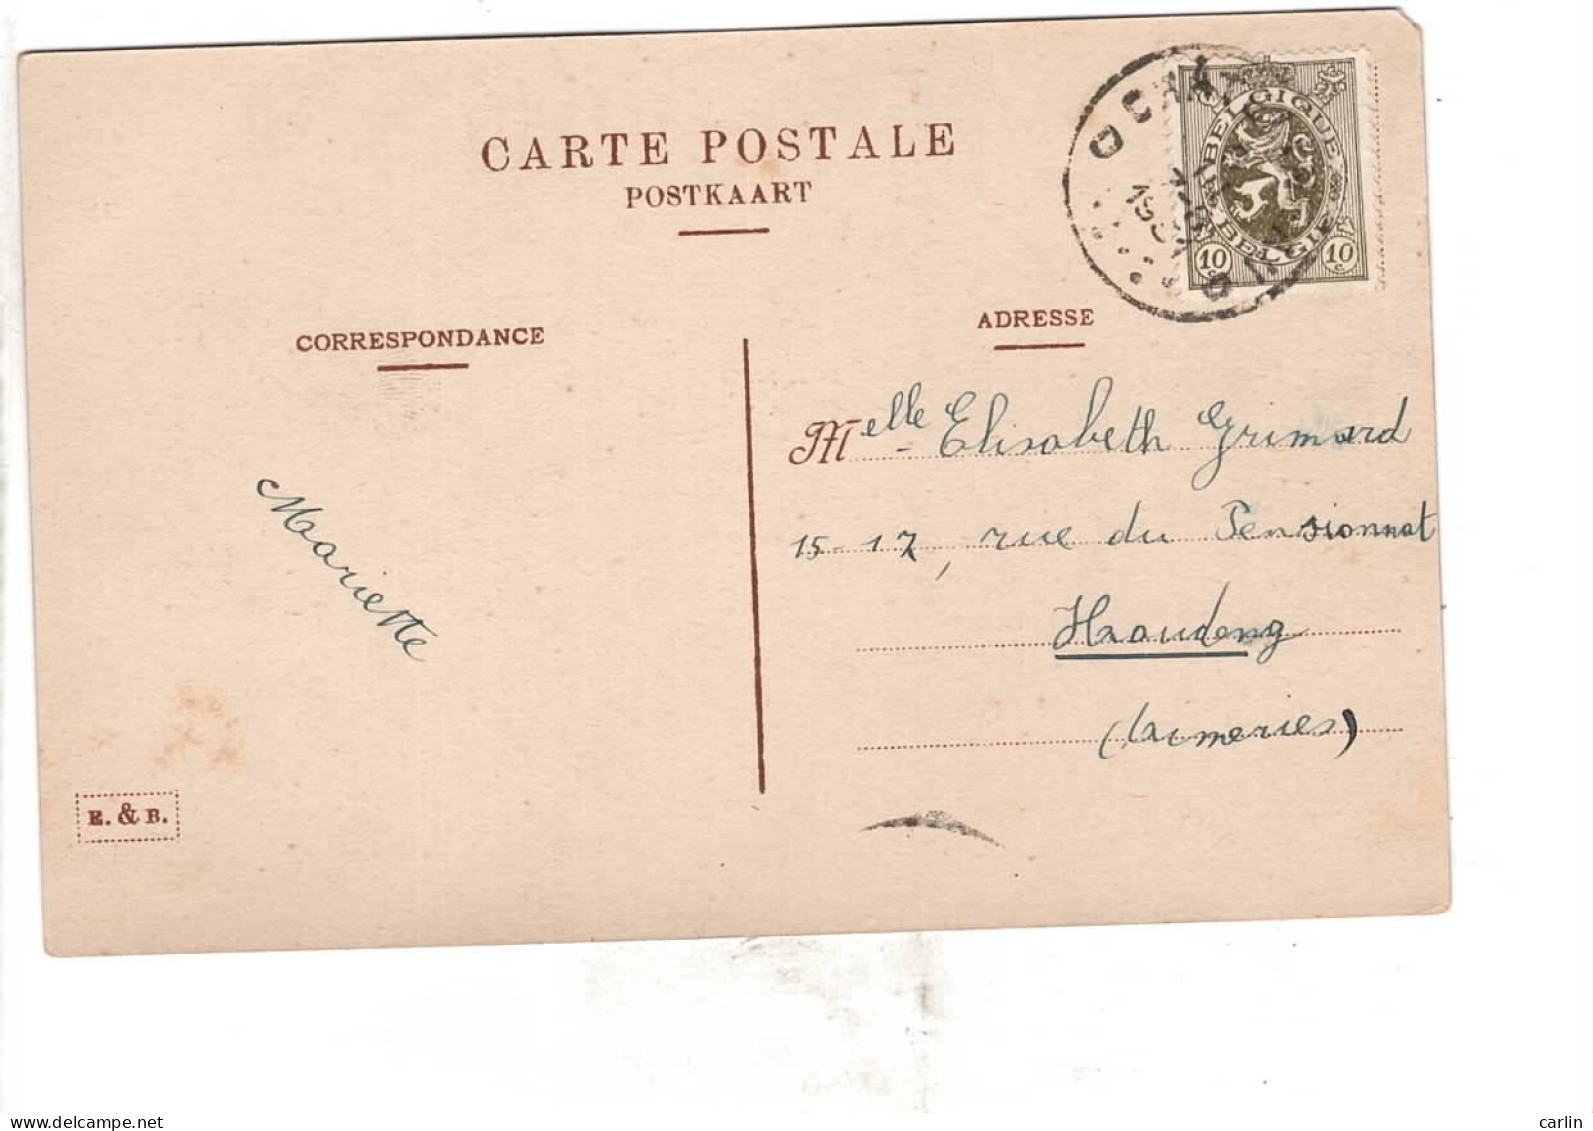 CARTE POSTALE
POSTKAART
BELGIQUE
BELGIE
10c 10c
CORRESPONDANCE
ADRESSE
Melle Elisabeth Grimard
15-17, rue du Pensionnat
Houdeng
(Aimeries)
Mariette
E. & B.
www.delcampe.net
carlin